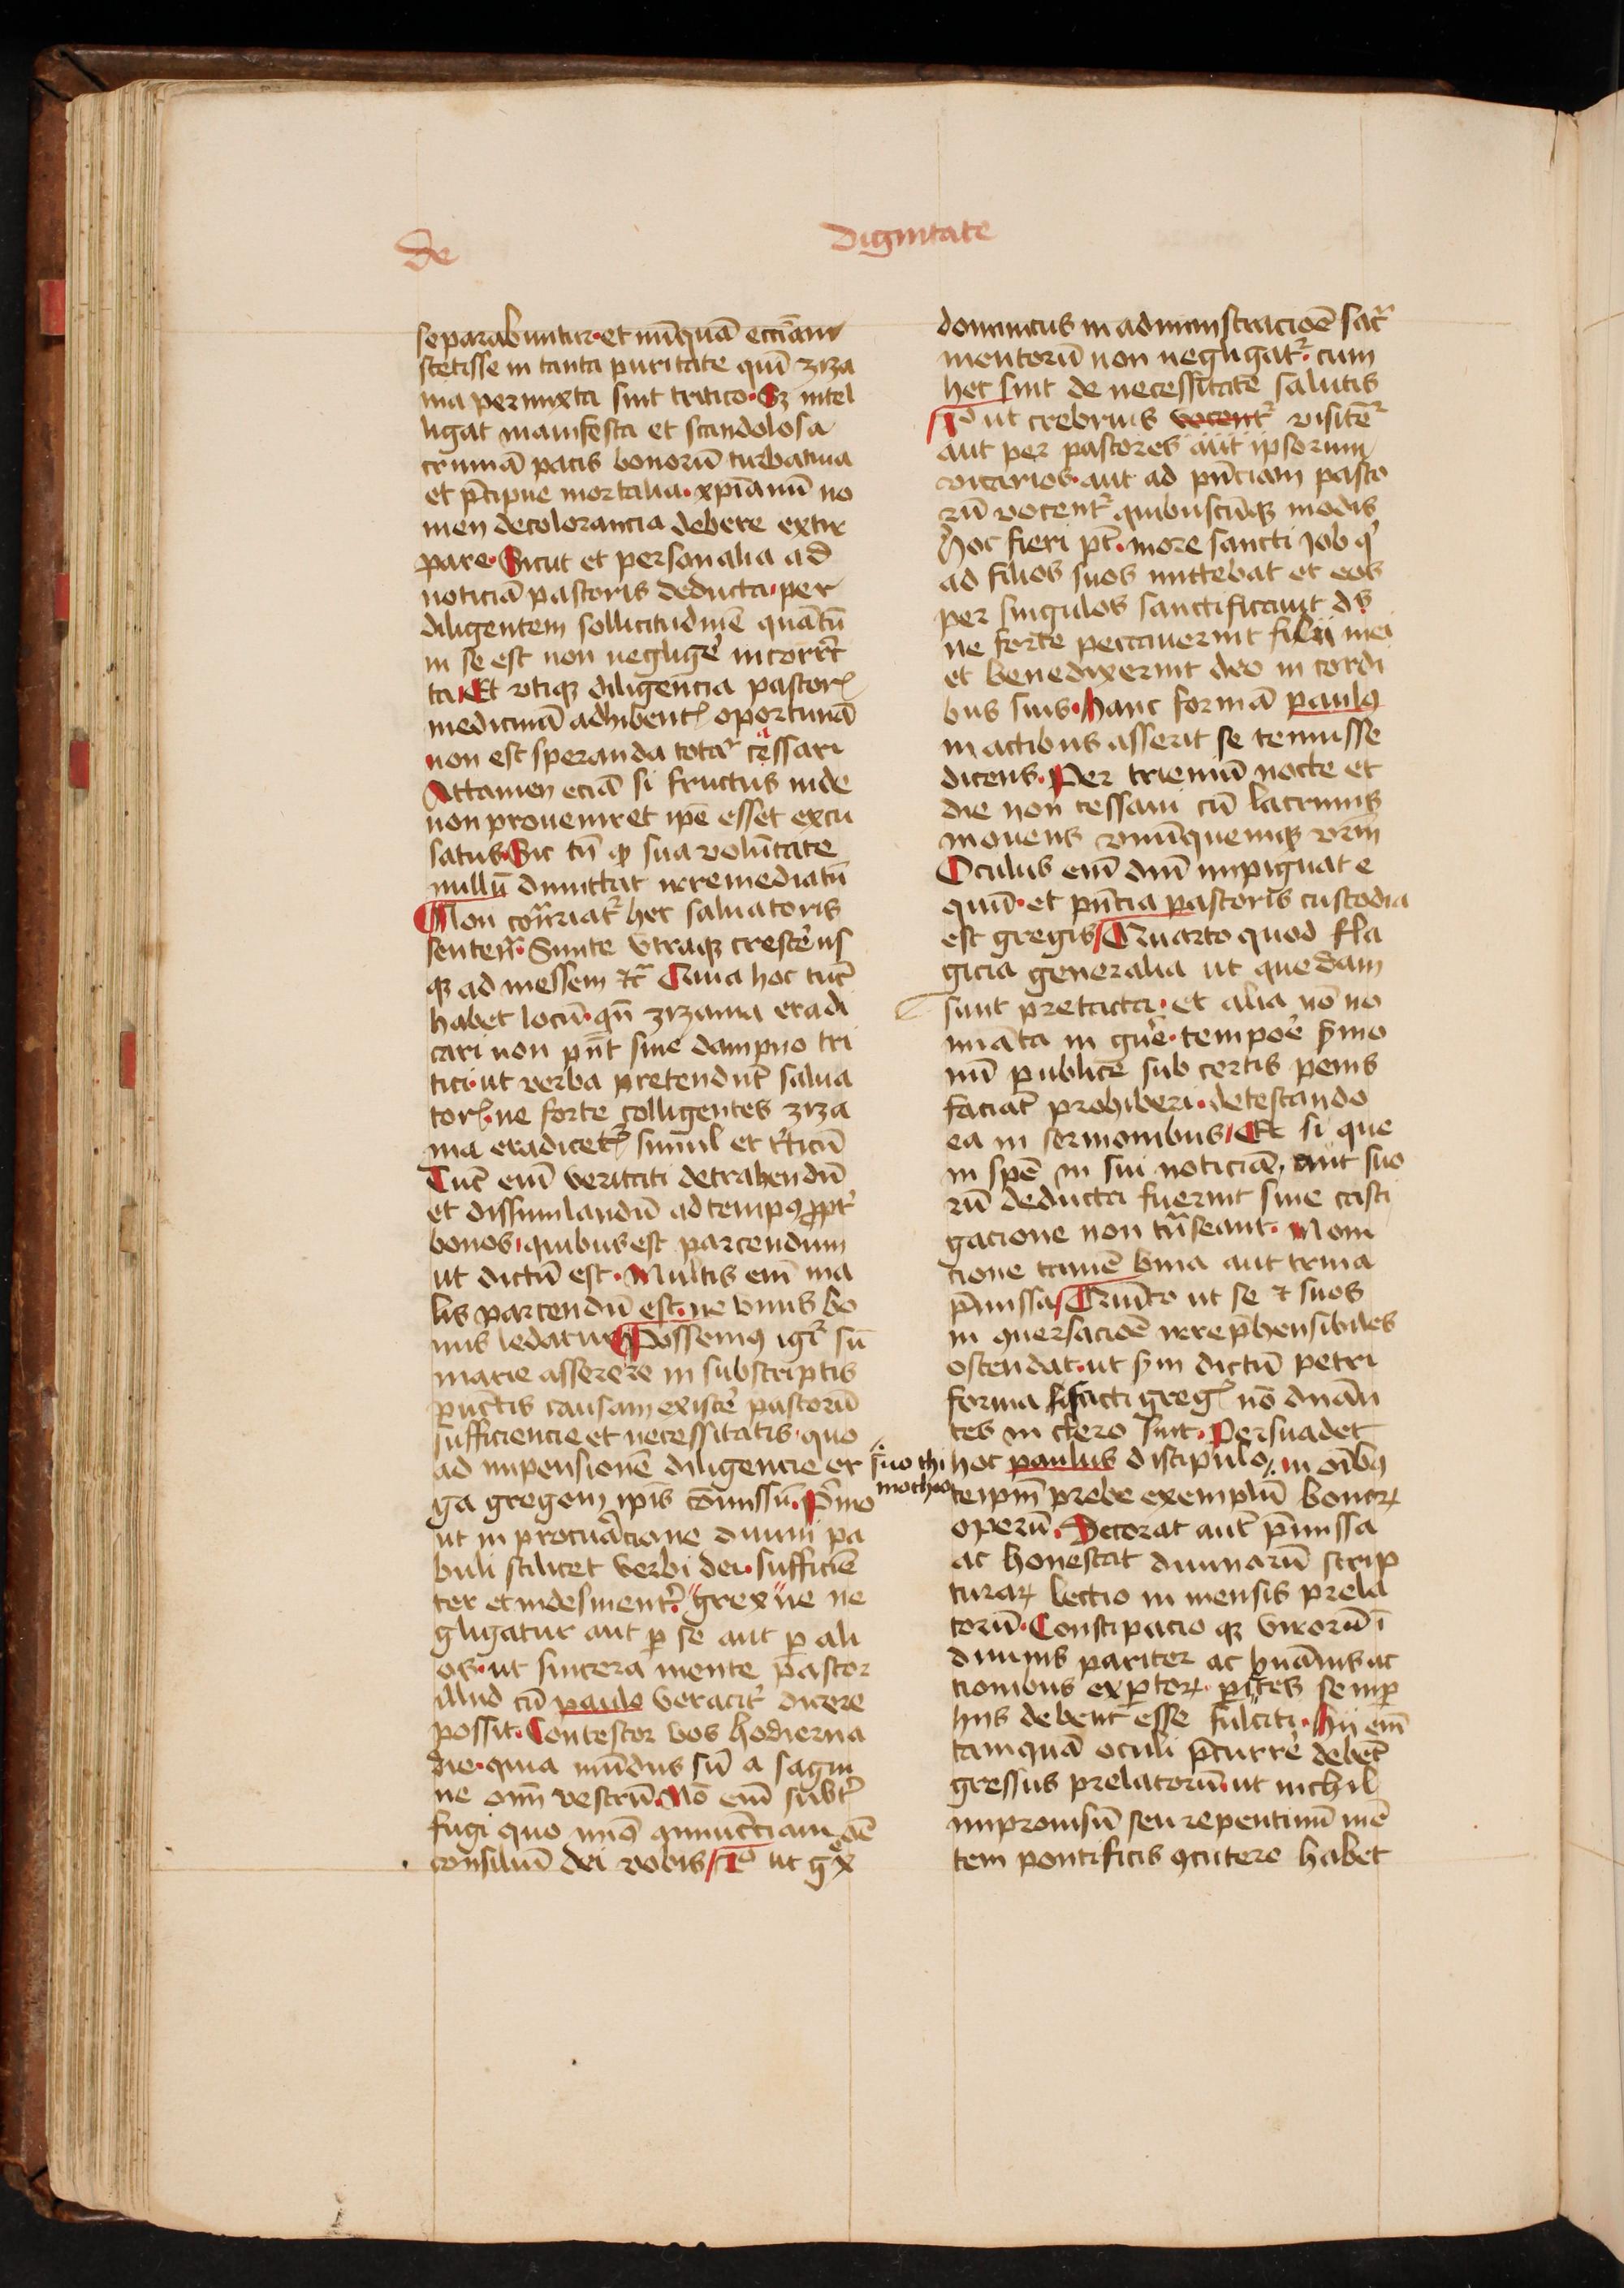 de
Dignitate
separabuntur · et nūquā ecc̄iam
stetisse in tanta puritate quī ziza
nia permixta sint tritico · Sz intel
ligat manifesta et scandolosa
crīmīā pacis bonorū turbatiua
et p̄cipue mortalia · xp̄ianū no
men decolorancia debere extir
pare · Sicut et personalia ad
noticiā pastoris deducta · per
diligentem sollicitudinē quātū
in se est non negligē incorrē
cta Et vtiqz diligencia pastor̄
medicinā adhibent̄ oportunā
non est speranda totā cessari
Attamen eciā si fructus inde
non proueniret ip̄e esset excu
satus · Sic tn̄ qp sua volūtate
nullū dimittat irremediatū
Non cōtrariat᷑ hec saluatoris
senten̄ · Sinite vtraqz crescē us
qz ad messem ⁊c̄ Quia hoc tūc
habet locū · qn̄ zizania eradi
cari non pn̄t sine dampno tri
tici · ut verba pretendūt salua
tor̄ · ne forte colligentes ziza
nia eradicet᷑ simul et t̄ticū
Tūc enī veritati detrahendū
et dissimilandū ad tempꝯ ꝓpt᷑
bonos · quibus est parcendum
ut dictū est · Multis enī ma
lis parcendū est · ne vnus bo
nus ledatur Possemꝯ igit᷑ sū
marie asserere in subscriptis
pūctis causam existē pastorū
sufficiencie et necessitatis · quo
ad impensionē diligencie er
ga gregem ip̄is cōmissū · P̄mo
ut in procuracione diuini pa
buli scilicet verbi dei · sufficiē
ter et indesinent᷑ · grex ne ne
gligatur aut ꝑ se aut ꝑ ali
os · ut sincera mente pastor
illud cū paulo veracit᷑ dicere
possit · Contestor vos hodierna
die · quia mūdus sū a sagwi
ne om̄ vestrū · Nō enī subt᷑
fugi quo minꝯ annūcciam oē
consiliū dei vobis 2º ut g̊x
dominicus in administracioē sac᷑
mentorū non negligat᷑ · cum
hec sint de necessitate salutis
3º ut crebrius vocent᷑ visitē᷑
aut per pastores aut ipsorum
vicarios · aut ad pn̄ciam pasto
rū vocent᷑ quibuscūqz modis
hoc fieri pt̄ · more sancti Job q̄
ad filios suos mittebat et eos
per singulos sanctificauit dn̄s
ne forte peccauerint filii mei
et benedixerint deo in cordi
bus suis · Hanc formā paulꝯ
in actibus asserit se tenuisse
dicens · Per trieniū nocte et
die non cessaui cū lacrimis
mouens vnūquemqz vrm̄
Oculus enī dnī impignat e
quū · et pn̄cia pastoris custodia
est gregis Quarto quod fla
gicia generalia ut quedam
sunt pretacta · et alia nō no
mīata in gn̄e · tempoē s̄mo
nū publice sub certis penis
faciat prohiberi · detestando
ea in sermonibus Et si que
in spē in sui noticiā, aut suo
rū deducta fuerint sine casti
gacione non trāseant · Moni
cione tamē bina aut trina
p̄missa Quinto ut se ⁊ suos
in ꝯuersacioē irrep̄hensibiles
ostendat · ut s̄m dictū petri
forma facti greg᷑ nō dn̄an
tes in clero sint · Persuadet
hoc paulus discipulo ⁒ in oībꝯ
suo thi
motheo
teipm̄ prebe exemplū bonoꝝ
operū · Decorat aut̄ p̄missa
ac honestat diuinarū scrip
turaꝝ lectio in mensis prela
torū · Constipacio qz virorū ī
diuinis pariter ac humanis ac
tionibus expertoꝝ · p̄ites semꝑ
hiis debent esse fulciti · Hii enī
tamquā oculi p̄currē debēt
gressus prelatorū · ut nichil
improuisū seu repentinū mē
tem pontificis ꝯcutere habet